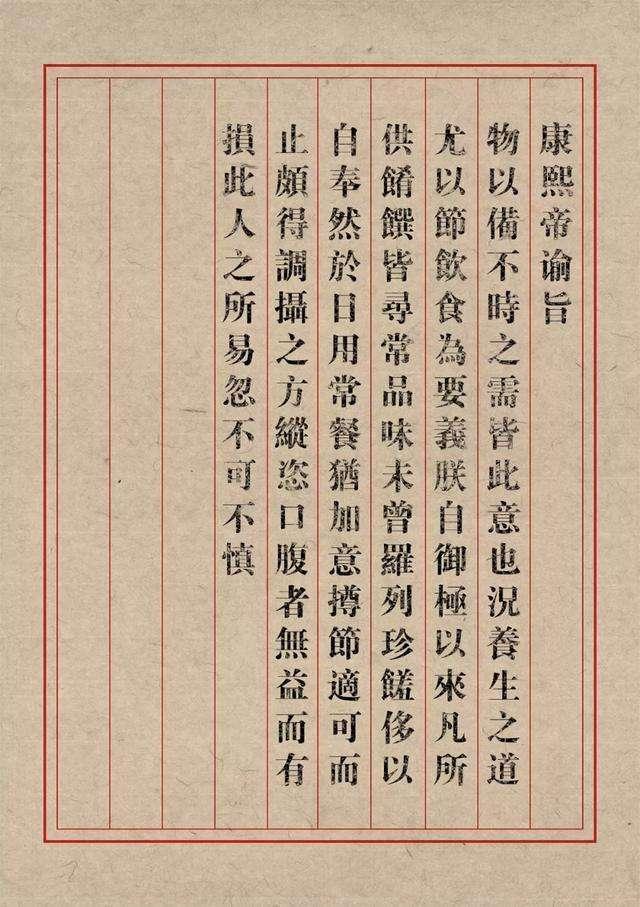 康熙帝谕旨
物以備不時之需皆此意也況養生之道
尤以節飲食為要義朕自御極以來凡所
供餚饌皆尋常品味未曾羅列珍饈侈以
自奉然於日用常餐猶加意撙節適可而
止頗得調攝之方縱恣口腹者無益而有
損此人之所易忽不可不慎